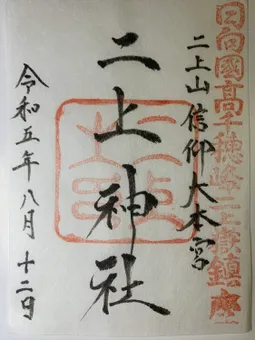 日向國高千穂峰二上嶽鎮座
二上山信仰大本宮
二上神社
令和五年八月十二日